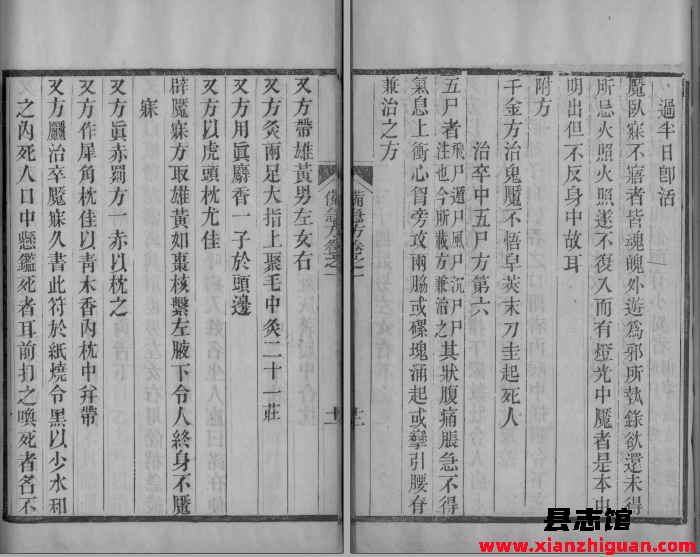 過半日即活
魘臥寐不寤者皆魂魄外遊爲邪所執錄欲還未得
所忌火照火照遂不復入而有燈光中魘者是本由
明出但不反身中故耳
附方
千金方治鬼魘不悟皁莢末刀圭起死人
治卒中五尸方第六
五尸者飛尸遁尸風尸沉尸尸注也今所載方兼治之其狀腹痛脹急不得
氣息上衝心胷旁攻兩脇或磥塊涌起或攣引腰脊
兼治之方
備急方卷之一
備急方卷之一
十一
又方帶雄黃男左女右
又方灸兩足大指上聚毛中灸二十一莊
又方用眞麝香一子於頭邊
又方以虎頭枕尤佳
辟魘寐方取雄黃如棗核繫左腋下令人終身不魘
寐
又方眞赤蜀方一赤以枕之
又方作犀角枕佳以青木香內枕中幷帶
又方䰱治卒魘寐久書此符於紙燒令黑以少水和
之內死人口中懸鑑死者耳前打之喚死者名不
县志馆
www.xianzhiguan.com